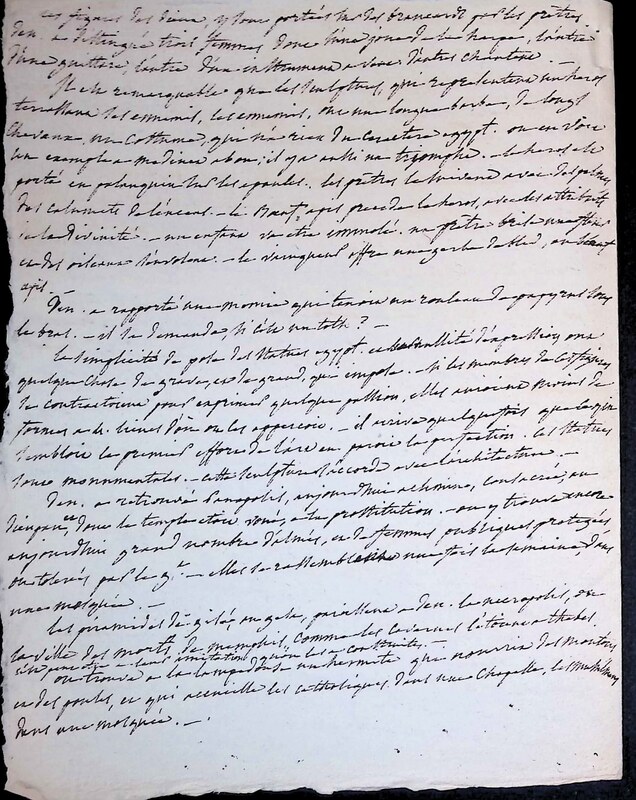 ces figures des dieux, y sont portées sur des brancards par les prêtres
Den. a distingué trois femmes dont l'une joue de la harpe, l'autre
d'une guittare, l'autre d'un instrument à vent d'autres chantent. —
Il est remarquable que les sculptures, qui representent un heros
terrassant les ennemis, les ennemis, ont une longue barbe, de longs
cheveux, un costume, qui n'a rien du caractere egypt. on en voit
un exemple a medinet abou; il y a aussi un triomphe. — le heros est
porté en palanquin sur les epaules. les prêtres le suivent avec des palmes
des calumets de l'encens. — le Bœuf apis precede le heros, avec des attributs
de la divinité. — un enfant va etre immolé. un prêtre
et des oiseaux s'envolent. — le vainqueur offre une gerbe de bled, au bœuf
apis. —
Den. a rapporté une momie qui tenoit un rouleau de papyrus sous
le bras. — il se demande, si c'est un toth? —
La simplicité de pose des statues egypt. et la nullité d'expression ont
quelque chose de grave, et de grand, qui impose. — Si les membres de ces figures
se contractoient pour exprimer quelque passion, elles auroient moins de
formes a de lieues d'où on les apperçoit. — il arrive quelquefois que ce qui
sembloit le premier effort de l'art en paroit la perfection. les statues
sont monumentales. — cette sculpture s'accorde avec l'architecture. —
Den. a retrouvé Panopolis, aujourd'hui achmin, consacrée, au
dont le temple etoit voué, a la prostitution. — on y trouve encore
aujourd'hui grand nombre d'almés, et de femmes publiques protegées
ou tolerées par le g.t — elles se rassemblent une fois la semaine dans
une mosquée. —
Les piramides de gizé, paroissent a Den. la necropolis, ou
la ville des morts de memphis, comme les cavernes l'etoient a thebes.
c'est peut etre a leur imitation
on trouve a la lampedouse un hermite qui nourrit des moutons
et des poules, et qui accueille les catholiques dans une chapelle, les musulmans
dans une mosquée. —